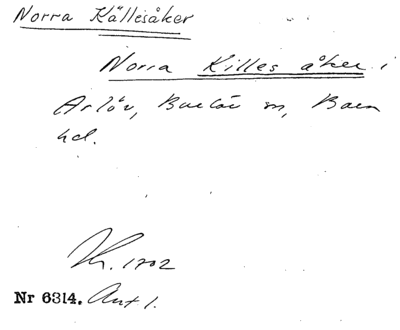 Norra Källesåker
Norra Killes åker i
Arlöv, Burlöv sn, Bara
hd.
Kr. 1702
Nr 6314. Ant 1.